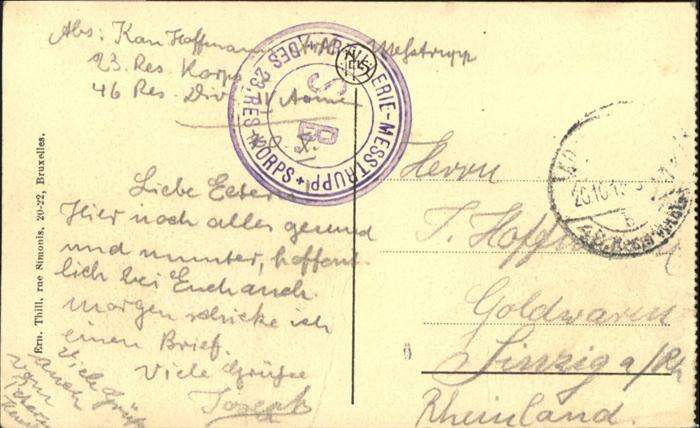 Abs: Kan Hoffmann Artill. Messtrupp
23. Res. Korps
46 Res. Div. V Armee
ARTILLERIE-MESSTRUPP
DES 23. RES. KORPS
S
B
Liebe Eltern
Hier noch alles gesund
und munter, hoffent
lich bei Euch auch.
morgen schicke ich
einen Brief.
Viele Grüße
Joseph
Viele Grüße
auch
vom
Ern. Thill, rue Simonis, 20-22, Bruxelles.
Herrn
J. Hoffmann
Goldwaren
Sinzig a/Rh
Rheinland.
6
b